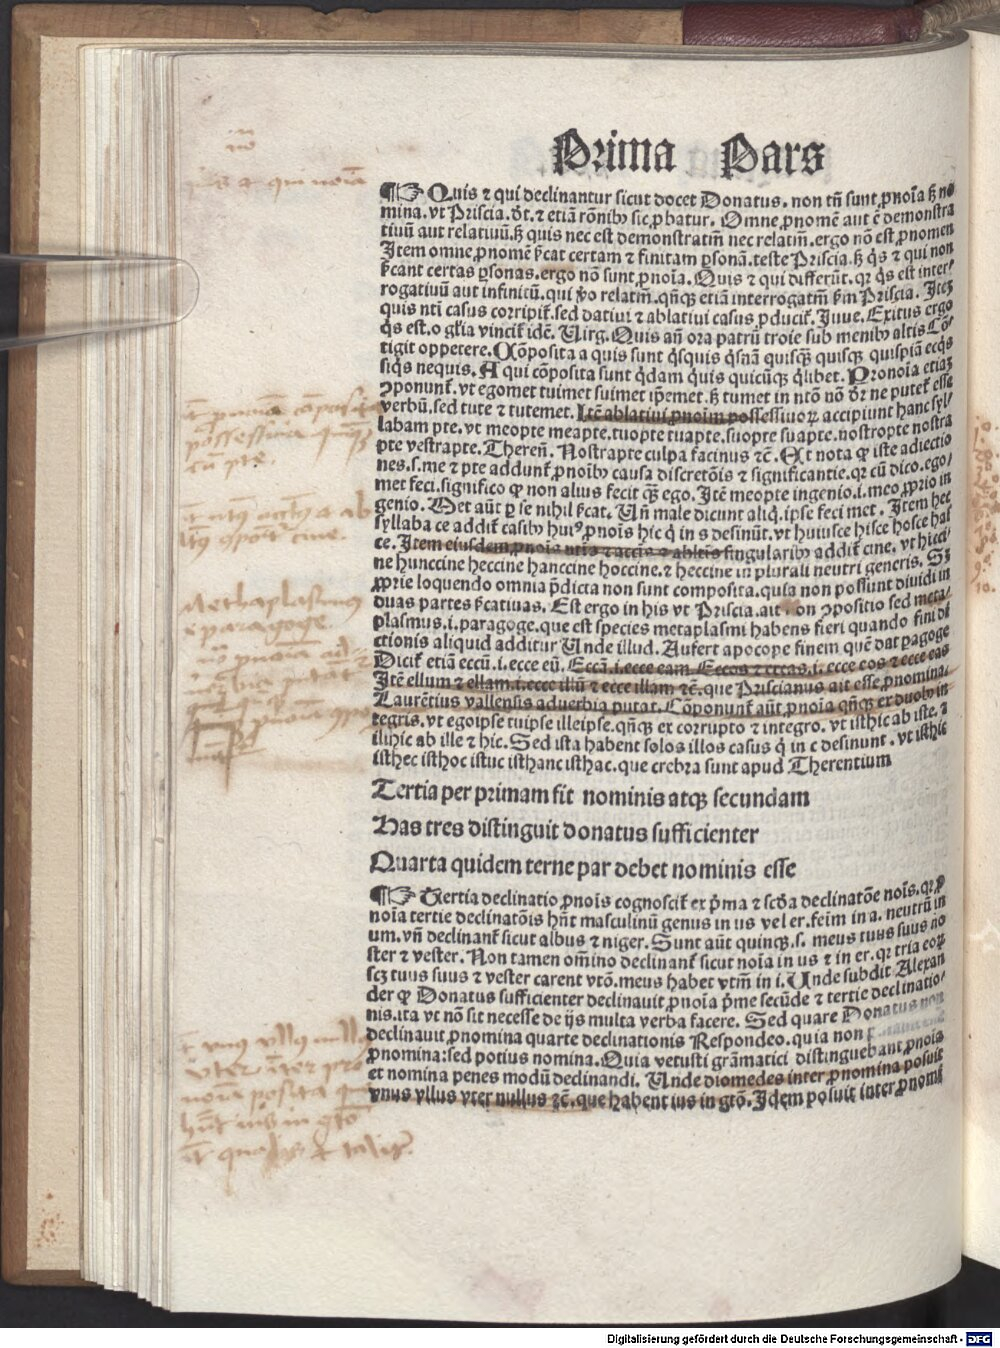 Prima Pars
Quis ⁊ qui declinantur sicut docet Donatus. non tñ sunt ꝓnoĩa sꝫ no
mina. vt Priscia. dt̃. ⁊ etiã rõnibꝰ sic ꝓbatur. Omne ꝓnomẽ aut ẽ demonstra
tiuũ aut relatiuũ. sꝫ quis nec est demonstratiũ nec relatiũ. ergo nõ est ꝓnomen
Item omne ꝓnomẽ s̃cat certam ⁊ finitam ꝑsonã. teste Priscia. sꝫ q̃s ⁊ qui non
s̃cant certas ꝑsonas. ergo nõ sunt ꝓnoĩa. Quis ⁊ qui differũt. qꝛ q̃s est inter⸗
rogatiuũ aut infinitũ. qui ṽo relatiũ. qñqꝫ etiã interrogatiũ s̃m Priscia. Itẽ
quis nti casus corripit̃. sed datiui ⁊ ablatiui casus ꝓducit̃. Juue. Exitus ergo
q̃s est. o gl̃ia vincit̃ idẽ. Uirg. Quis añ ora patrũ troie sub menibꝰ altis Cõ⸗
tigit oppetere. Cõposita a quis sunt q̃squis q̃snã quisqꝫ quisqꝫ quispiã ecq̃s
siq̃s nequis. A qui cõposita sunt q̃dam q̃uis quicũqꝫ q̃libet. Pronoĩa etiã
ↄponunt̃. vt egomet tuimet suimet ip̃emet. sꝫ tumet in ntõ nõ dr̃ ne putet̃ esse
verbũ. sed tute ⁊ tutemet. Itẽ ablatiui ꝓnoĩm possessiuoꝝ accipiunt hanc syl⸗
labam pte. vt meopte meapte. tuopte tuapte. suopte suapte. nostropte nostra
pte vestrapte. Therẽñ. Nostrapte culpa facinus ⁊c̃. Et nota ꝙ iste adiectio
nes. s. me ⁊ pte addunt̃ ꝓnoĩbꝰ causa discretõis ⁊ significantie. qꝛ cũ dico. ego⸗
met feci. significo ꝙ non alius fecit qꝫ̃ ego. Itẽ meopte ingenio. i. meo ꝓprio in
genio. Met aũt ꝑ se nihil s̃cat. Uñ male dicunt aliq̃. ipse feci met. Item hec
syllaba ce addit̃ casibꝰ huiꝰ ꝓnoĩs hic q̃ in s desinũt. vt huiusce hisce hosce has
ce. Item eiusdem ꝓnoĩs ntis ⁊ accĩs ⁊ abltĩs singularibꝰ addit̃ cine. vt hicci
ne hunccine heccine hanccine hoccine. ⁊ heccine in plurali neutri generis. Sꝫ
ꝓprie loquendo omnia p̃dicta non sunt composita. quia non possunt diuidi in
duas partes s̃catiuas. Est ergo in his vt Priscia. ait non ↄpositio sed meta⸗
plasmus. i. paragoge. que est species metaplasmi habens fieri quando fini di
ctionis aliquid additur Unde illud. Aufert apocope finem quẽ dat paragoge
Dicit̃ etiã eccũ. i. ecce eũ. Eccã. i. ecce eam. Eccos ⁊ eccas. i. ecce eos ⁊ ecce eas
Itẽ ellum ⁊ ellam. i. ecce illũ ⁊ ecce illam ⁊c̃. que Priscianus ait esse ꝓnomina.
Laurẽtius vallensis aduerbia putat. Cõponunt̃ aũt ꝓnoĩa qñqꝫ ex duobꝰ in⸗
tegris. vt egoipse tuipse illeipse. qñqꝫ ex corrupto ⁊ integro. vt isthic ab iste. ⁊
illhic ab ille ⁊ hic. Sed ista habent solos illos casus q̃ in c desinunt. vt isthic
isthec isthoc istuc isthanc isthac. que crebra sunt apud Therentium
Tertia per primam fit nominis atqꝫ secundam
Has tres distinguit donatus sufficienter
Quarta quidem terne par debet nominis esse
Tertia declinatio ꝓnoĩs cognoscit̃ ex p̃ma ⁊ scd̃a declinatõe noĩs. qꝛ ꝓ
noĩa tertie declinatõis hñt masculinũ genus in us vel er. feĩm in a. neutrũ in
um. vñ declinant̃ sicut albus ⁊ niger. Sunt aũt quinqꝫ. s. meus tuus suus no
ster ⁊ vester. Non tamen oĩmo declinant̃ sicut noĩa in us ⁊ in er. qꝛ tria eoꝝ
scꝫ tuus suus ⁊ vester carent vtõ. meus habet vtm̃ in i. Unde subdit Alexan
der ꝙ Donatus sufficienter declinauit ꝓnoĩa p̃me secũde ⁊ tertie declinatio⸗
nis. ita vt nõ sit necesse de ijs multa verba facere. Sed quare Donatus non
declinauit ꝓnomina quarte declinationis Respondeo. quia non
ꝓnomina: sed potius nomina. Quia vetusti grãmatici distinguebant ꝓnoĩa
et nomina penes modũ declinandi. Unde diomedes inter ꝓnomina posuit
vnus vllus vter nullus ⁊c̃. que habent ius in gtõ. Idem posuit inter ꝓnomĩ
Methaplasmus
paragoge
Digitalisierung gefördert durch die Deutsche Forschungsgemeinschaft - DFG